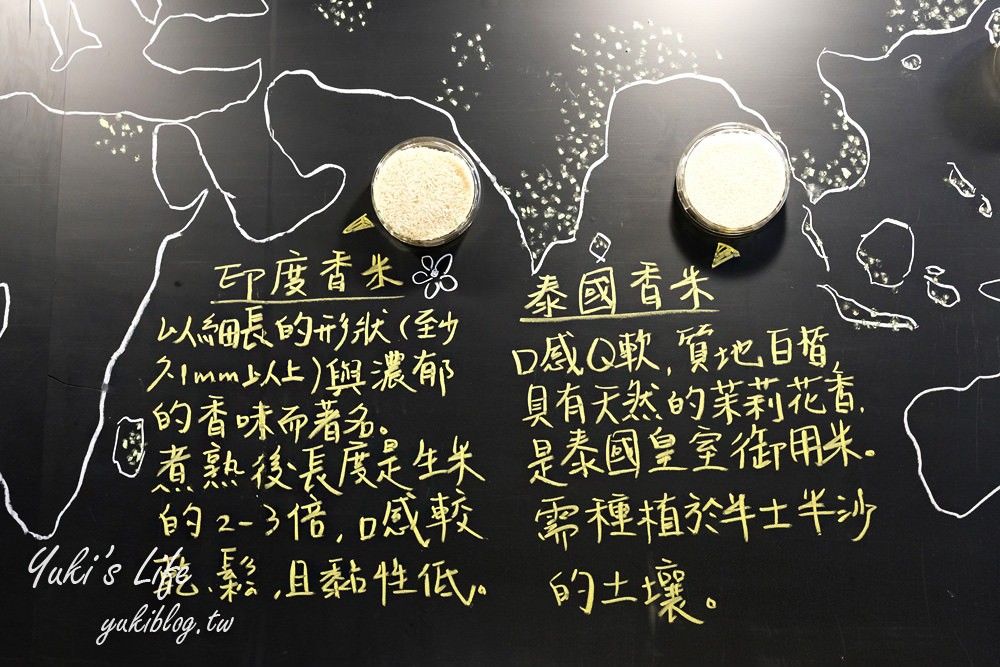 印度香米
以細長的形狀(至少
7.1mm以上)與濃郁
的香味而著名。
煮熟後長度是生米
的2-3倍,口感較
乾、鬆,且黏性低。
泰國香米
口感Q軟,質地白皙,
具有天然的茉莉花香,
是泰國皇室御用米。
需種植於半土半沙
的土壤。
Yuki's Life
yukiblog.tw